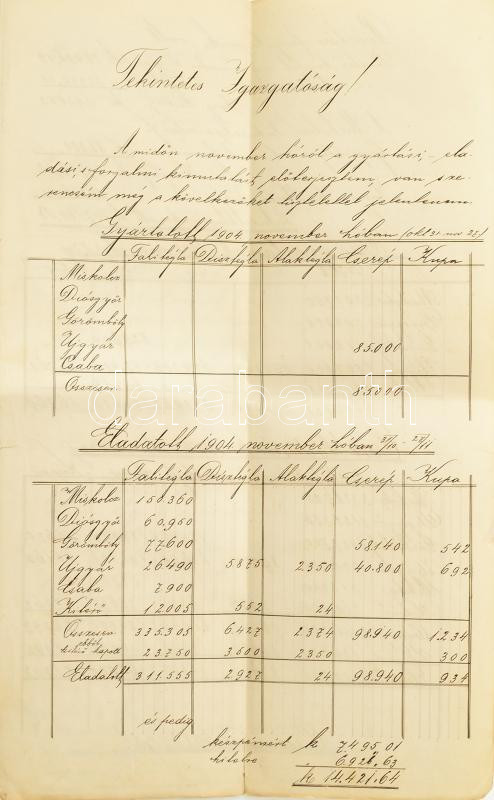 Tekintetes Igazgatóság!
A midőn november hóról a gyártási, ela-
dási s forgalmi kimutatást előterjesztem, van sze-
rencsém még a következőket tisztelettel jelentenem.
Gyártatott 1904 november hóban (okt 31-nov 27)
Falitégla Dísztégla Alaktégla Cserép Kupa
Miskolcz
Diósgyőr
Görömböly
Ujgyár 85.000
Csaba
Összesen 85000
darabanth
Eladatott 1904 november hóban 31/10 - 27/11
Falitégla Dísztégla Alaktégla Cserép Kupa
Miskolcz 150.360
Diósgyőr 60.950
Görömböly 77600 58.140 542
Ujgyár 26490 5875 2350 40.800 692
Csaba 7900
Kitérő 12005 552 24
Összesen 335.305 6.427 2374 98.940 1234
ebből
kitérő kapott 23750 3500 2350 300
Eladatott 311.555 2927 24 98.940 934
és pedig
készpénzért k 7495.01
hitelre " 6926.63
k 14.421.64